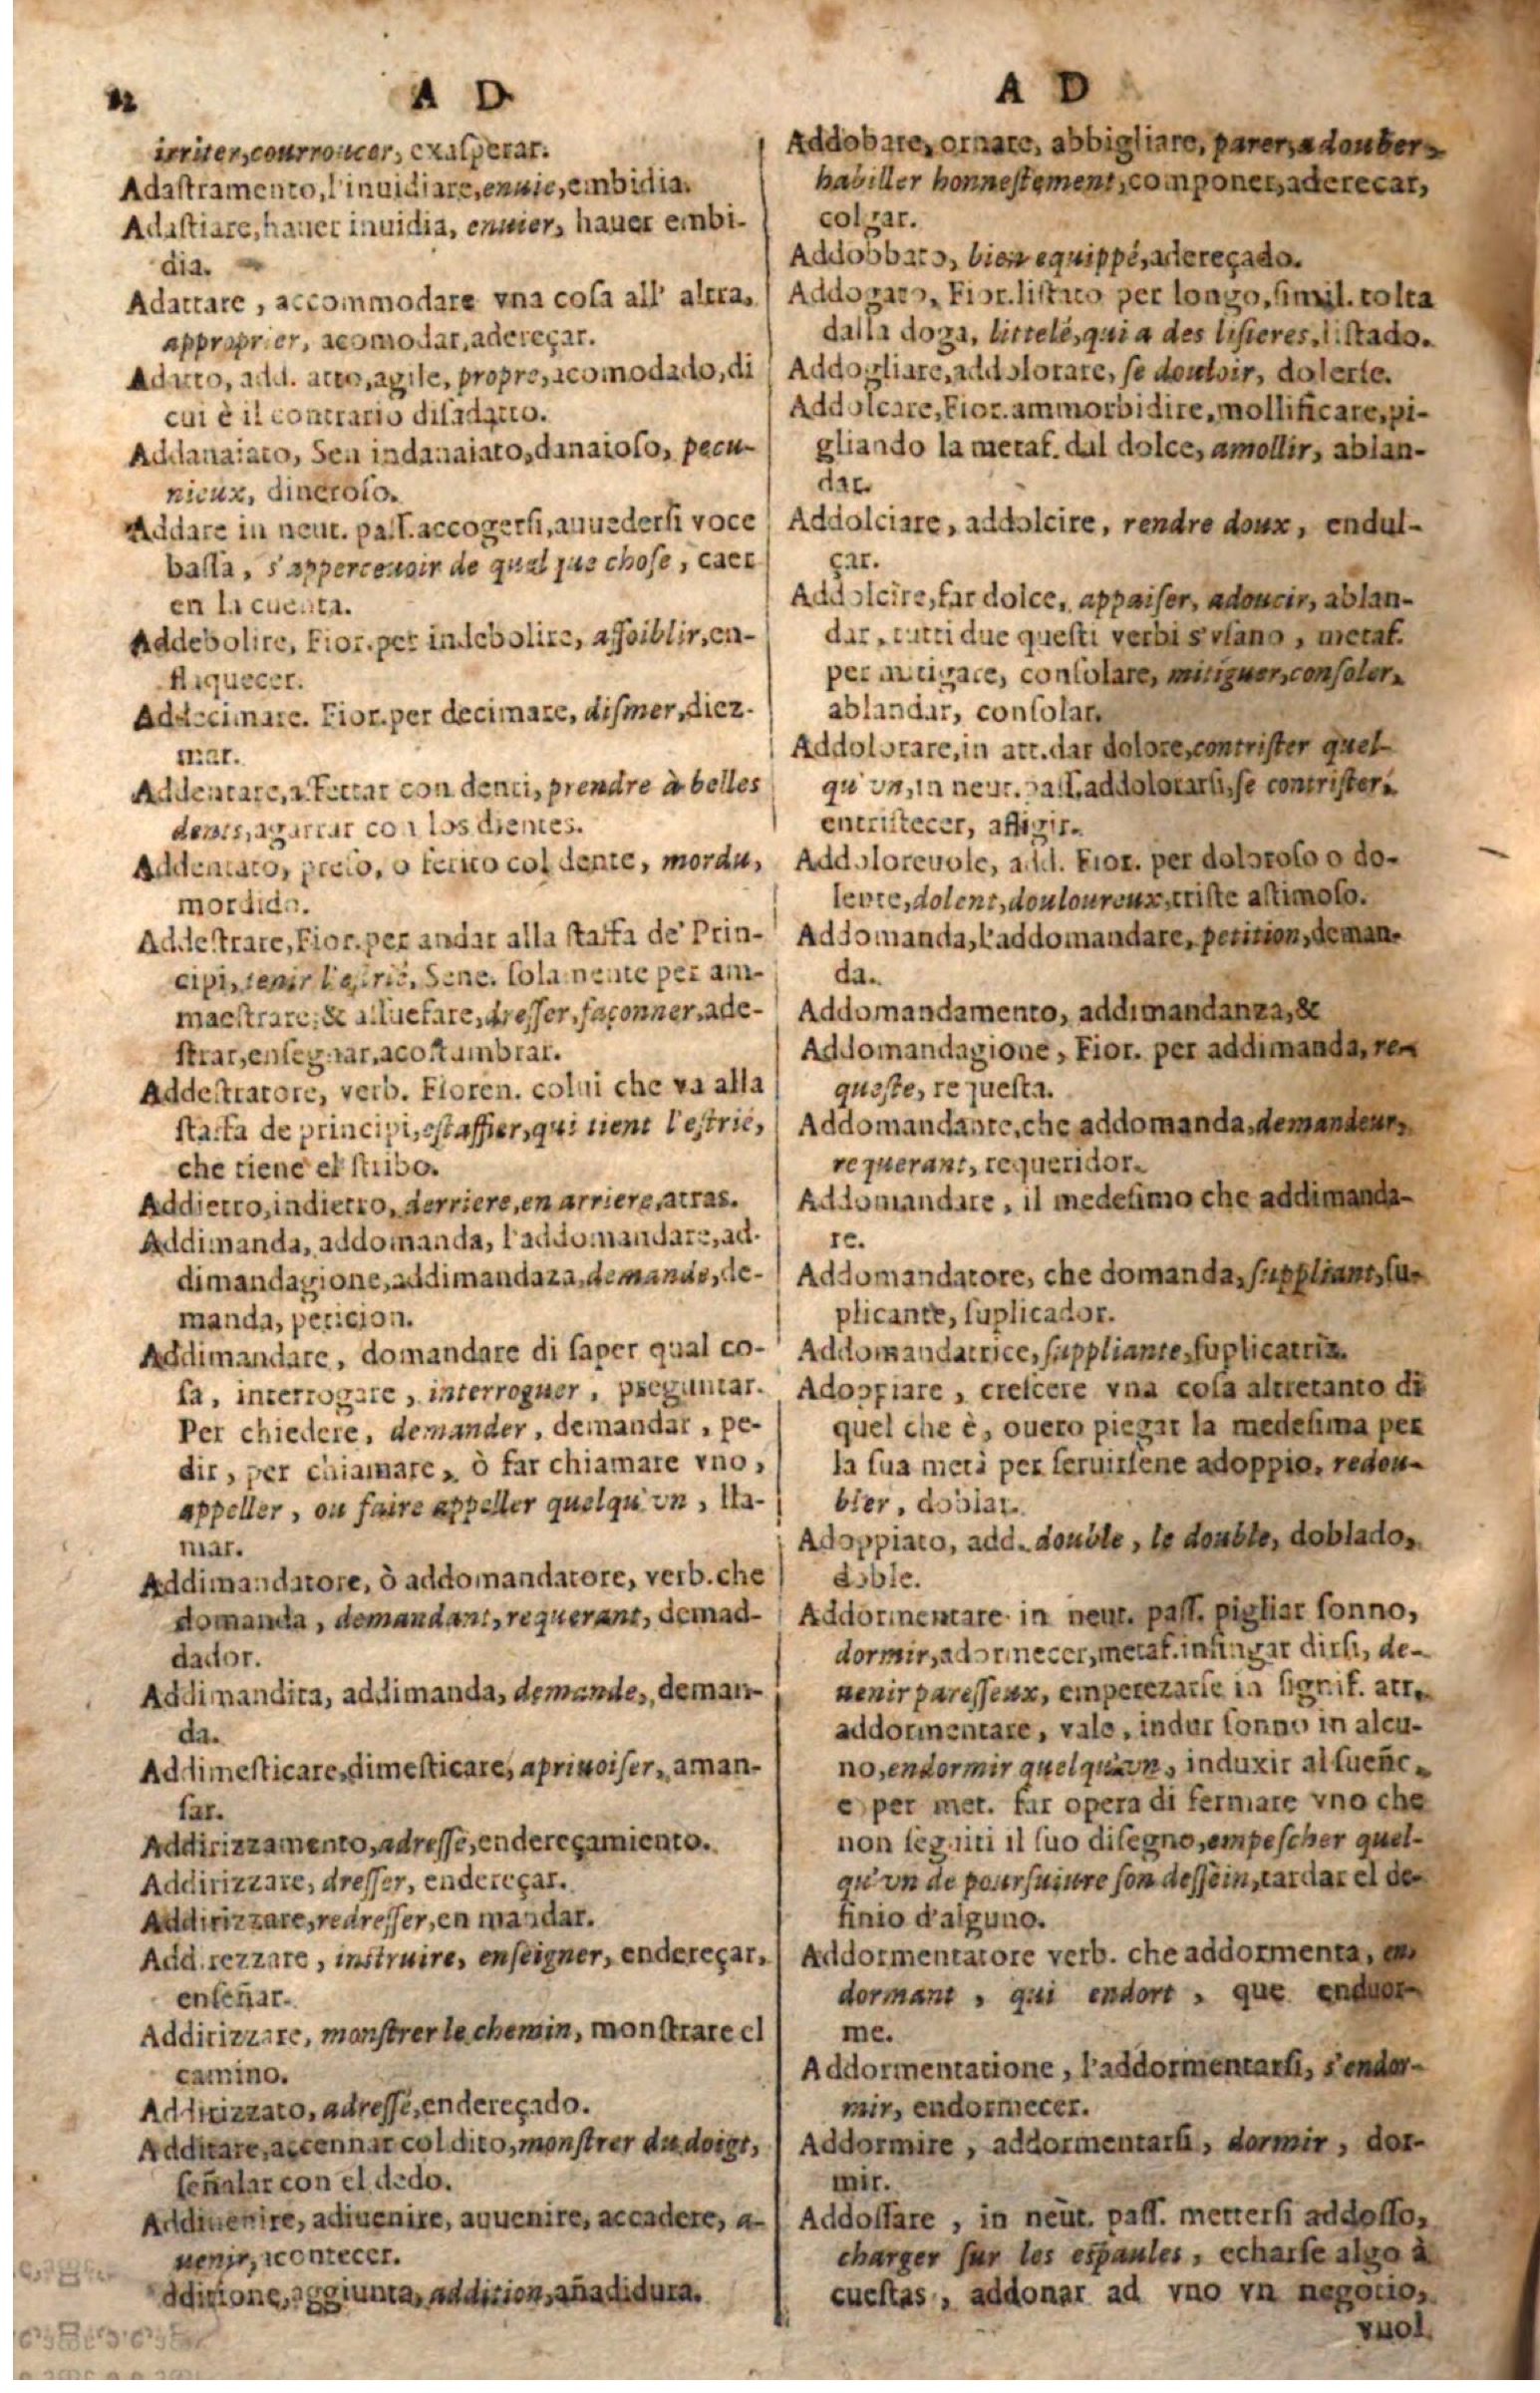 12
A D
irriter, courroucer, exaſperar.
Adaſtramento, l'inuidiare, enuie, embidia.
Adaſtiare, hauer inuidia, enuier, hauer embi-
dia.
Adattare, accommodare vna coſa all' altra,
approprier, acomodar, adereçar.
Adatto, add. atto, agile, propre, acomodado, di
cui è il contrario diſadatto.
Addanaiato, Sen indanaiato, danaioſo, pecu-
nieux, dineroſo.
Addare in neut. paſſ. accogerſi, auuederſi voce
baſſa, s'apperceuoir de quelque choſe, caer
en la cuenta.
Addebolire, Fior. per indebolire, affoiblir, en-
flaquecer.
Addecimare. Fior. per decimare, diſmer, diez-
mar.
Addentare, afferrar con denti, prendre à belles
dents, agarrar con los dientes.
Addentato, preſo, o ferito col dente, mordu,
mordido.
Addeſtrare, Fior. per andar alla ſtaffa de' Prin-
cipi, tenir l'eſtrié, Sene. ſolamente per am-
maeſtrare, & aſſuefare, dreſſer, façonner, ade-
ſtrar, enſegnar, acoſtumbrar.
Addeſtratore, verb. Fioren. colui che va alla
ſtaffa de principi, eſtaffier, qui tient l'eſtrié,
che tiene el ſtribo.
Addietro, indietro, derriere, en arriere, atras.
Addimanda, addomanda, l'addomandare, ad-
dimandagione, addimandaza, demande, de-
manda, peticion.
Addimandare, domandare di ſaper qual co-
ſa, interrogare, interroguer, preguntar.
Per chiedere, demander, demandar, pe-
dir, per chiamare, ò far chiamare vno,
appeller, ou faire appeller quelqu'vn, lla-
mar.
Addimandatore, ò addomandatore, verb. che
domanda, demandant, requerant, demad-
dador.
Addimandita, addimanda, demande, deman-
da.
Addimeſticare, dimeſticare, apriuoiſer, aman-
ſar.
Addirizzamento, adreſſe, endereçamiento.
Addirizzare, dreſſer, endereçar.
Addirizzare, redreſſer, en mandar.
Addirezzare, inſtruire, enſeigner, endereçar,
enſeñar.
Addirizzare, monſtrer le chemin, monſtrare el
camino.
Addirizzato, adreſſé, endereçado.
Additare, accennar col dito, monſtrer du doigt,
ſeñalar con el dedo.
Addiuenire, adiuenire, auuenire, accadere, a-
uenir, acontecer.
dditione, aggiunta, addition, añadidura.
A D
Addobare, ornare, abbigliare, parer, adouber,
habiller honneſtement, componer, aderecar,
colgar.
Addobbato, bien equippé, adereçado.
Addogato, Fior. liſtato per longo, ſimil. tolta
dalla doga, littelé, qui a des liſieres, liſtado.
Addogliare, addolorare, ſe douloir, dolerſe.
Addolcare, Fior. ammorbidire, mollificare, pi-
gliando la metaf. dal dolce, amollir, ablan-
dar.
Addolciare, addolcire, rendre doux, endul-
çar.
Addolcire, far dolce, appaiſer, adoucir, ablan-
dar, tutti due queſti verbi s'vſano, metaf.
per mitigare, conſolare, mitiguer, conſoler,
ablandar, conſolar.
Addolorare, in att. dar dolore, contriſter quel-
qu'vn, in neut. paſſ. addolorarſi, ſe contriſter,
entriſtecer, affligir.
Addoloreuole, add. Fior. per doloroſo o do-
lente, dolent, douloureux, triſte aſtimoſo.
Addomanda, l'addomandare, petition, deman-
da.
Addomandamento, addimandanza, &
Addomandagione, Fior. per addimanda, re-
queſte, requeſta.
Addomandante, che addomanda, demandeur,
requerant, requeridor.
Addomandare, il medeſimo che addimanda-
re.
Addomandatore, che domanda, ſuppliant, ſu-
plicante, ſuplicador.
Addomandatrice, ſuppliante, ſuplicatriz.
Adoppiare, creſcere vna coſa altretanto di
quel che è, ouero piegar la medeſima per
la ſua metà per ſeruirſene adoppio, redou-
bler, doblar.
Adoppiato, add. double, le double, doblado,
doble.
Addormentare in neut. paſſ. pigliar ſonno,
dormir, adormecer, metaf. infingar dirſi, de-
uenir pareſſeux, emperezarſe in ſignif. att.
addormentare, vale, indur ſonno in alcu-
no, endormir quelqu'vn, induxir al ſueño,
e per met. far opera di fermare vno che
non ſeguiti il ſuo diſegno, empeſcher quel-
qu'vn de pourſuiure ſon deſſein, tardar el de-
ſinio d'alguno.
Addormentatore verb. che addormenta, en-
dormant, qui endort, que enduor-
me.
Addormentatione, l'addormentarſi, s'endor-
mir, endormecer.
Addormire, addormentarſi, dormir, dor-
mir.
Addoſſare, in neut. paſſ. metterſi addoſſo,
charger ſur les eſpaules, echarſe algo à
cueſtas, addonar ad vno vn negotio,
vuol